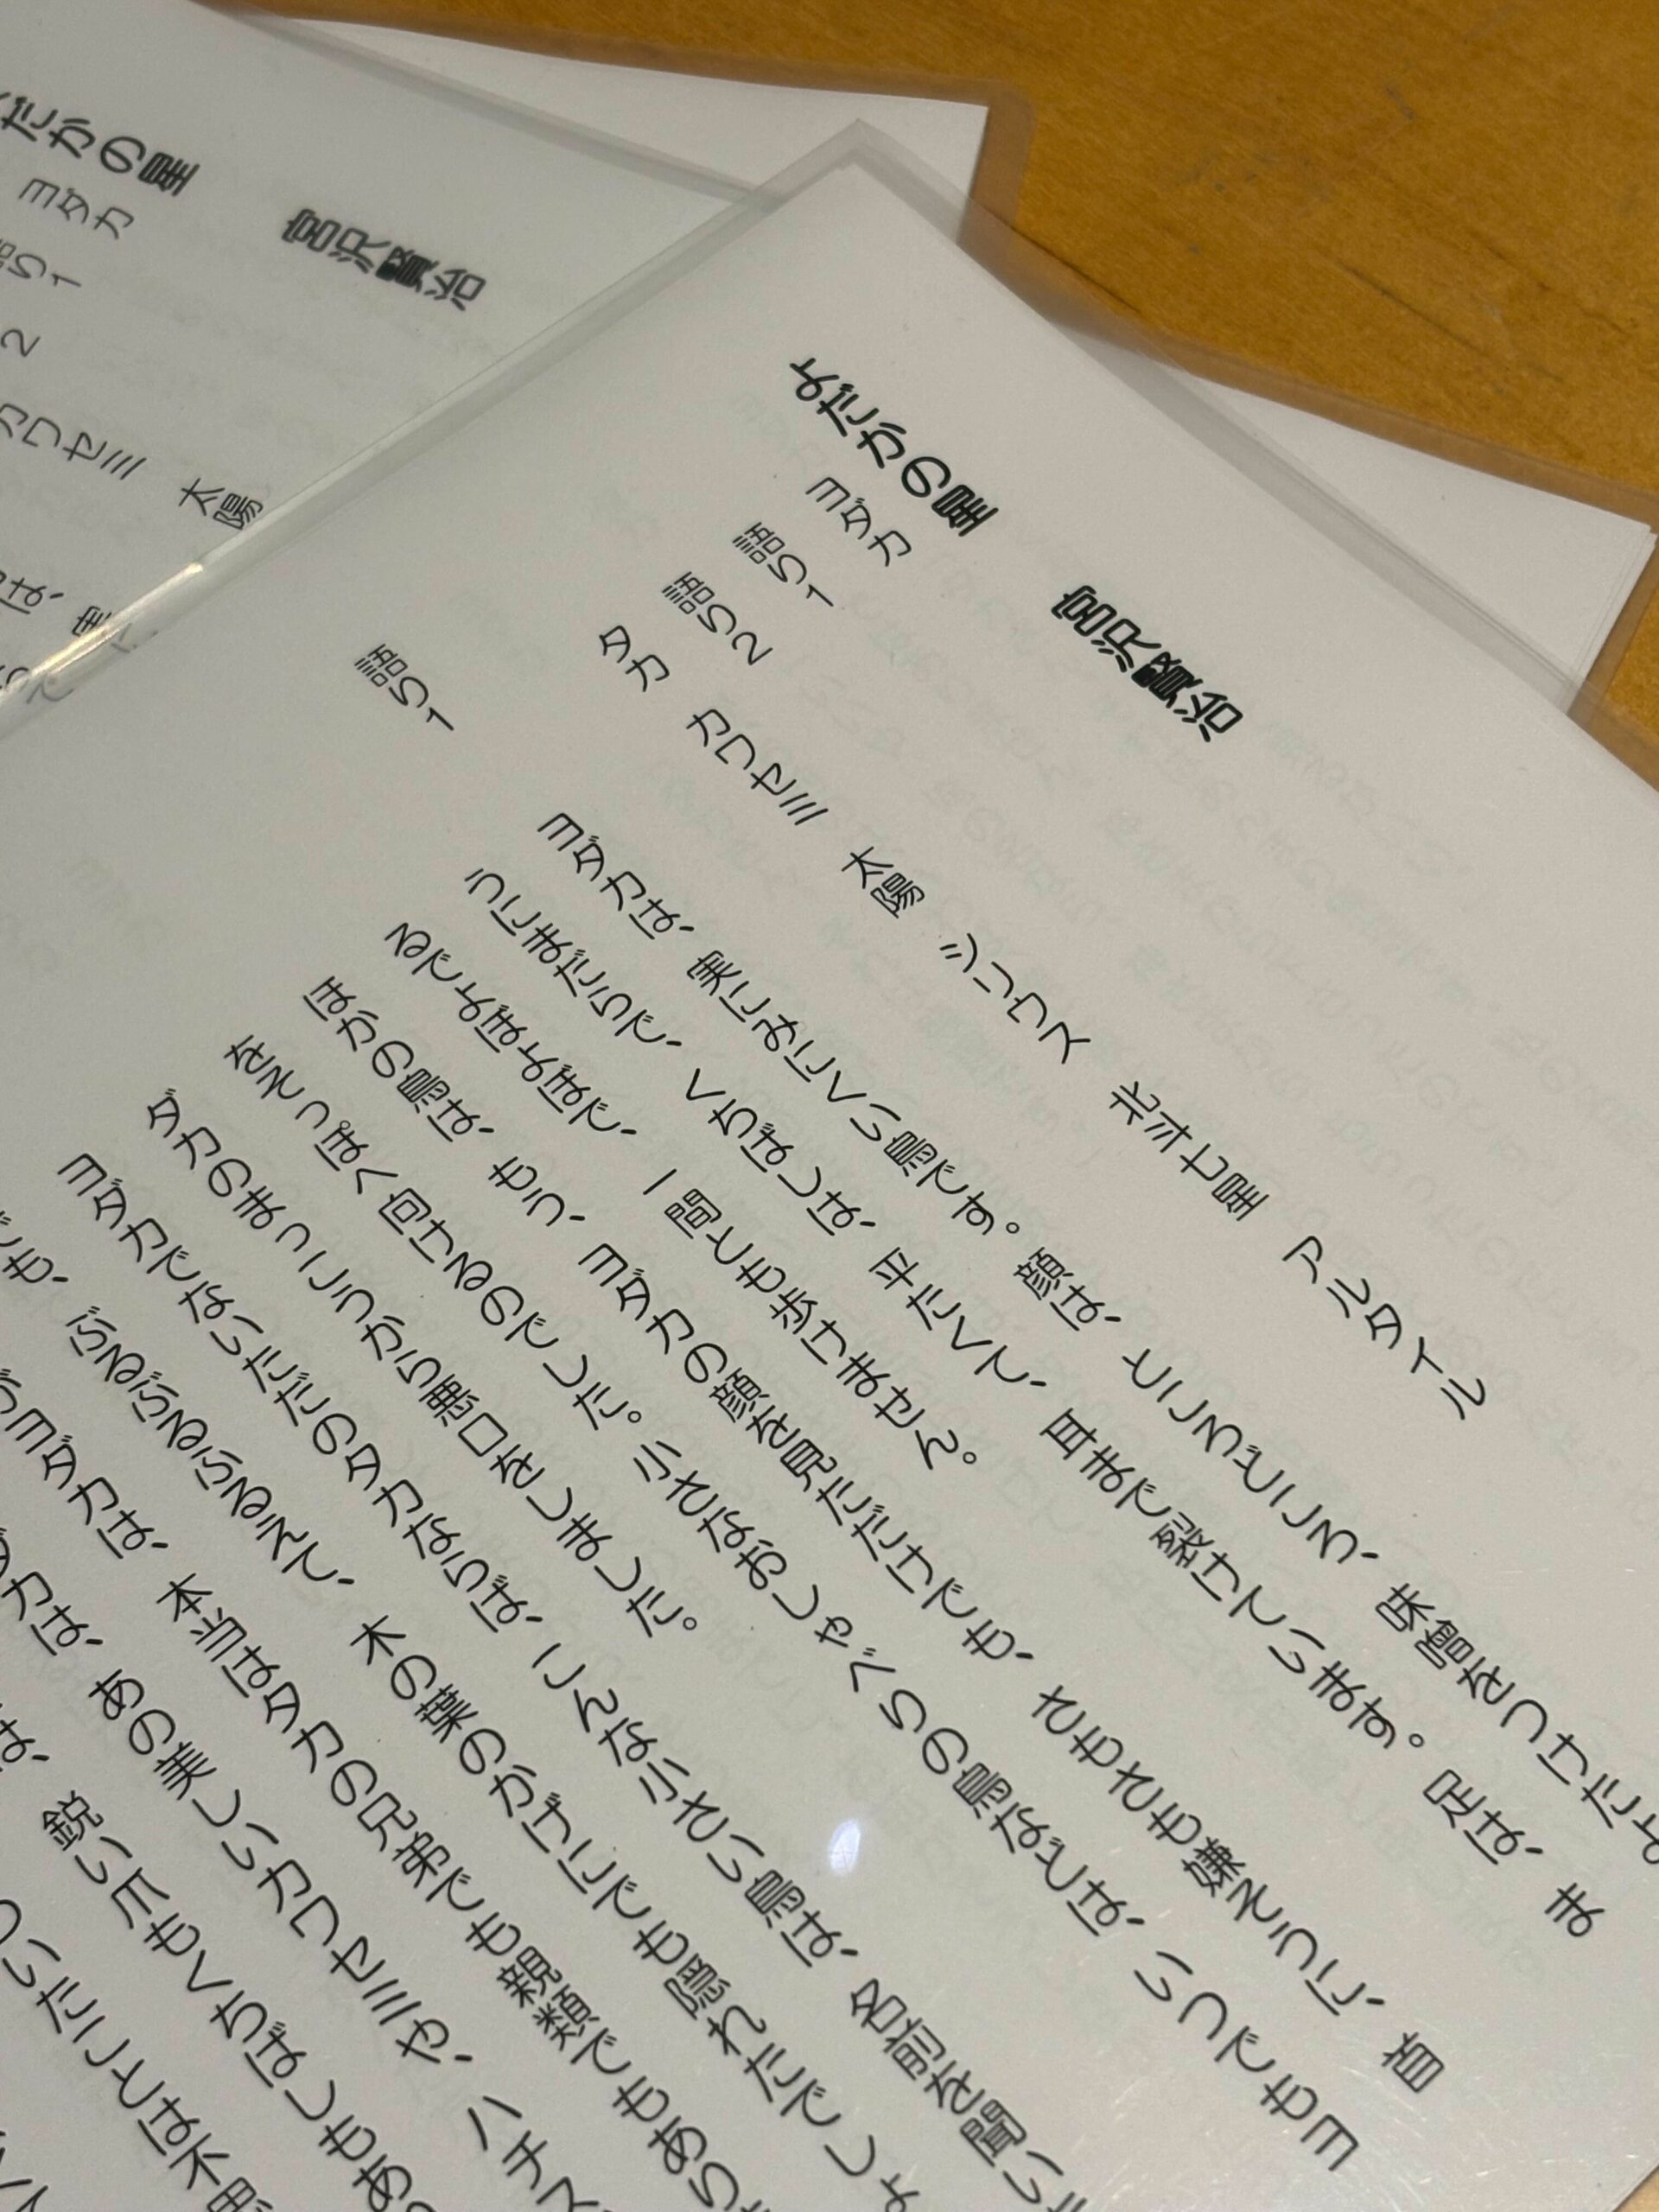 よだかの星
宮沢賢治
ヨダカ
語り1
語り2
タカ カワセミ 太陽 シリウス 北斗七星 アルタイル
語り1
ヨダカは、実にみにくい鳥です。顔は、ところどころ、味噌をつけたよ
うにまだらで、くちばしは、平たくて、耳まで裂けています。足は、ま
るでよぼよぼで、一間とも歩けません。
ほかの鳥は、もう、ヨダカの顔を見ただけでも、さもさも嫌そうに、首
をそっぽへ向けるのでした。小さなおしゃべりの鳥などは、いつでもヨ
ダカのまっこうから悪口をしました。
ヨダカでないただのタカならば、こんな小さい鳥は、名前を聞い
でも、ぶるぶるふるえて、木の葉のかげにでも隠れたでしょ
がヨダカは、本当はタカの兄弟でも親類でもあり
ダカは、あの美しいカワセミや、ハチス
は、鋭い爪もくちばしもあ
いたことは不思
だかの星
宮沢賢治
ヨダカ
語り1
2
カワセミ 太陽
は、実に